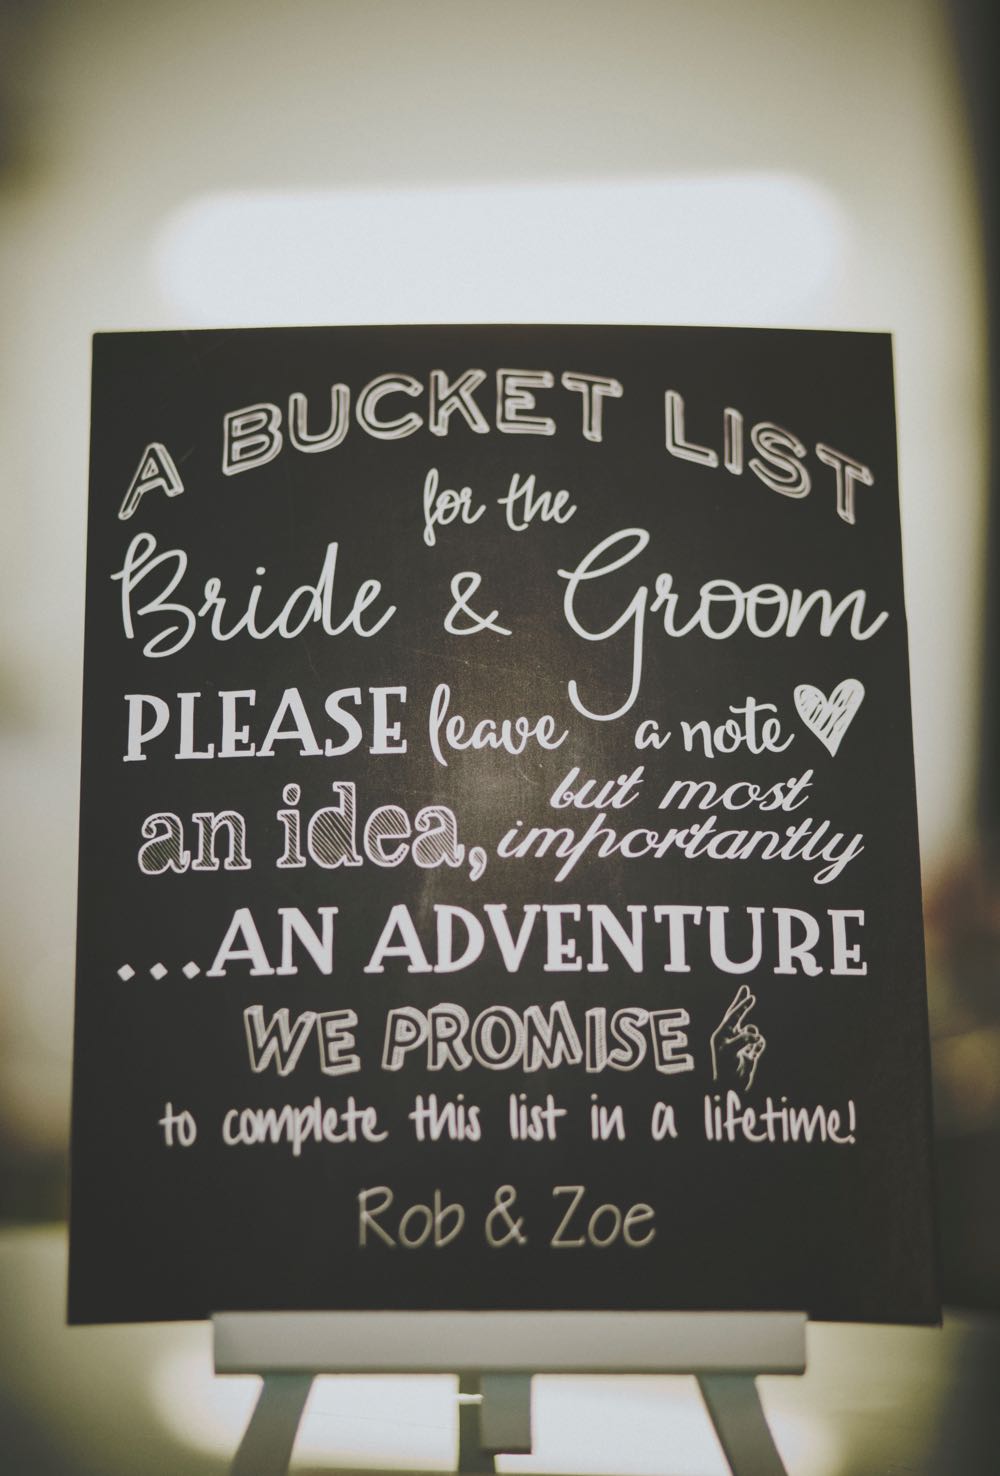 A BUCKET LIST
for the
Bride & Groom
PLEASE leave a note
an idea, but most importantly
...AN ADVENTURE
WE PROMISE
to complete this list in a lifetime!
Rob & Zoe